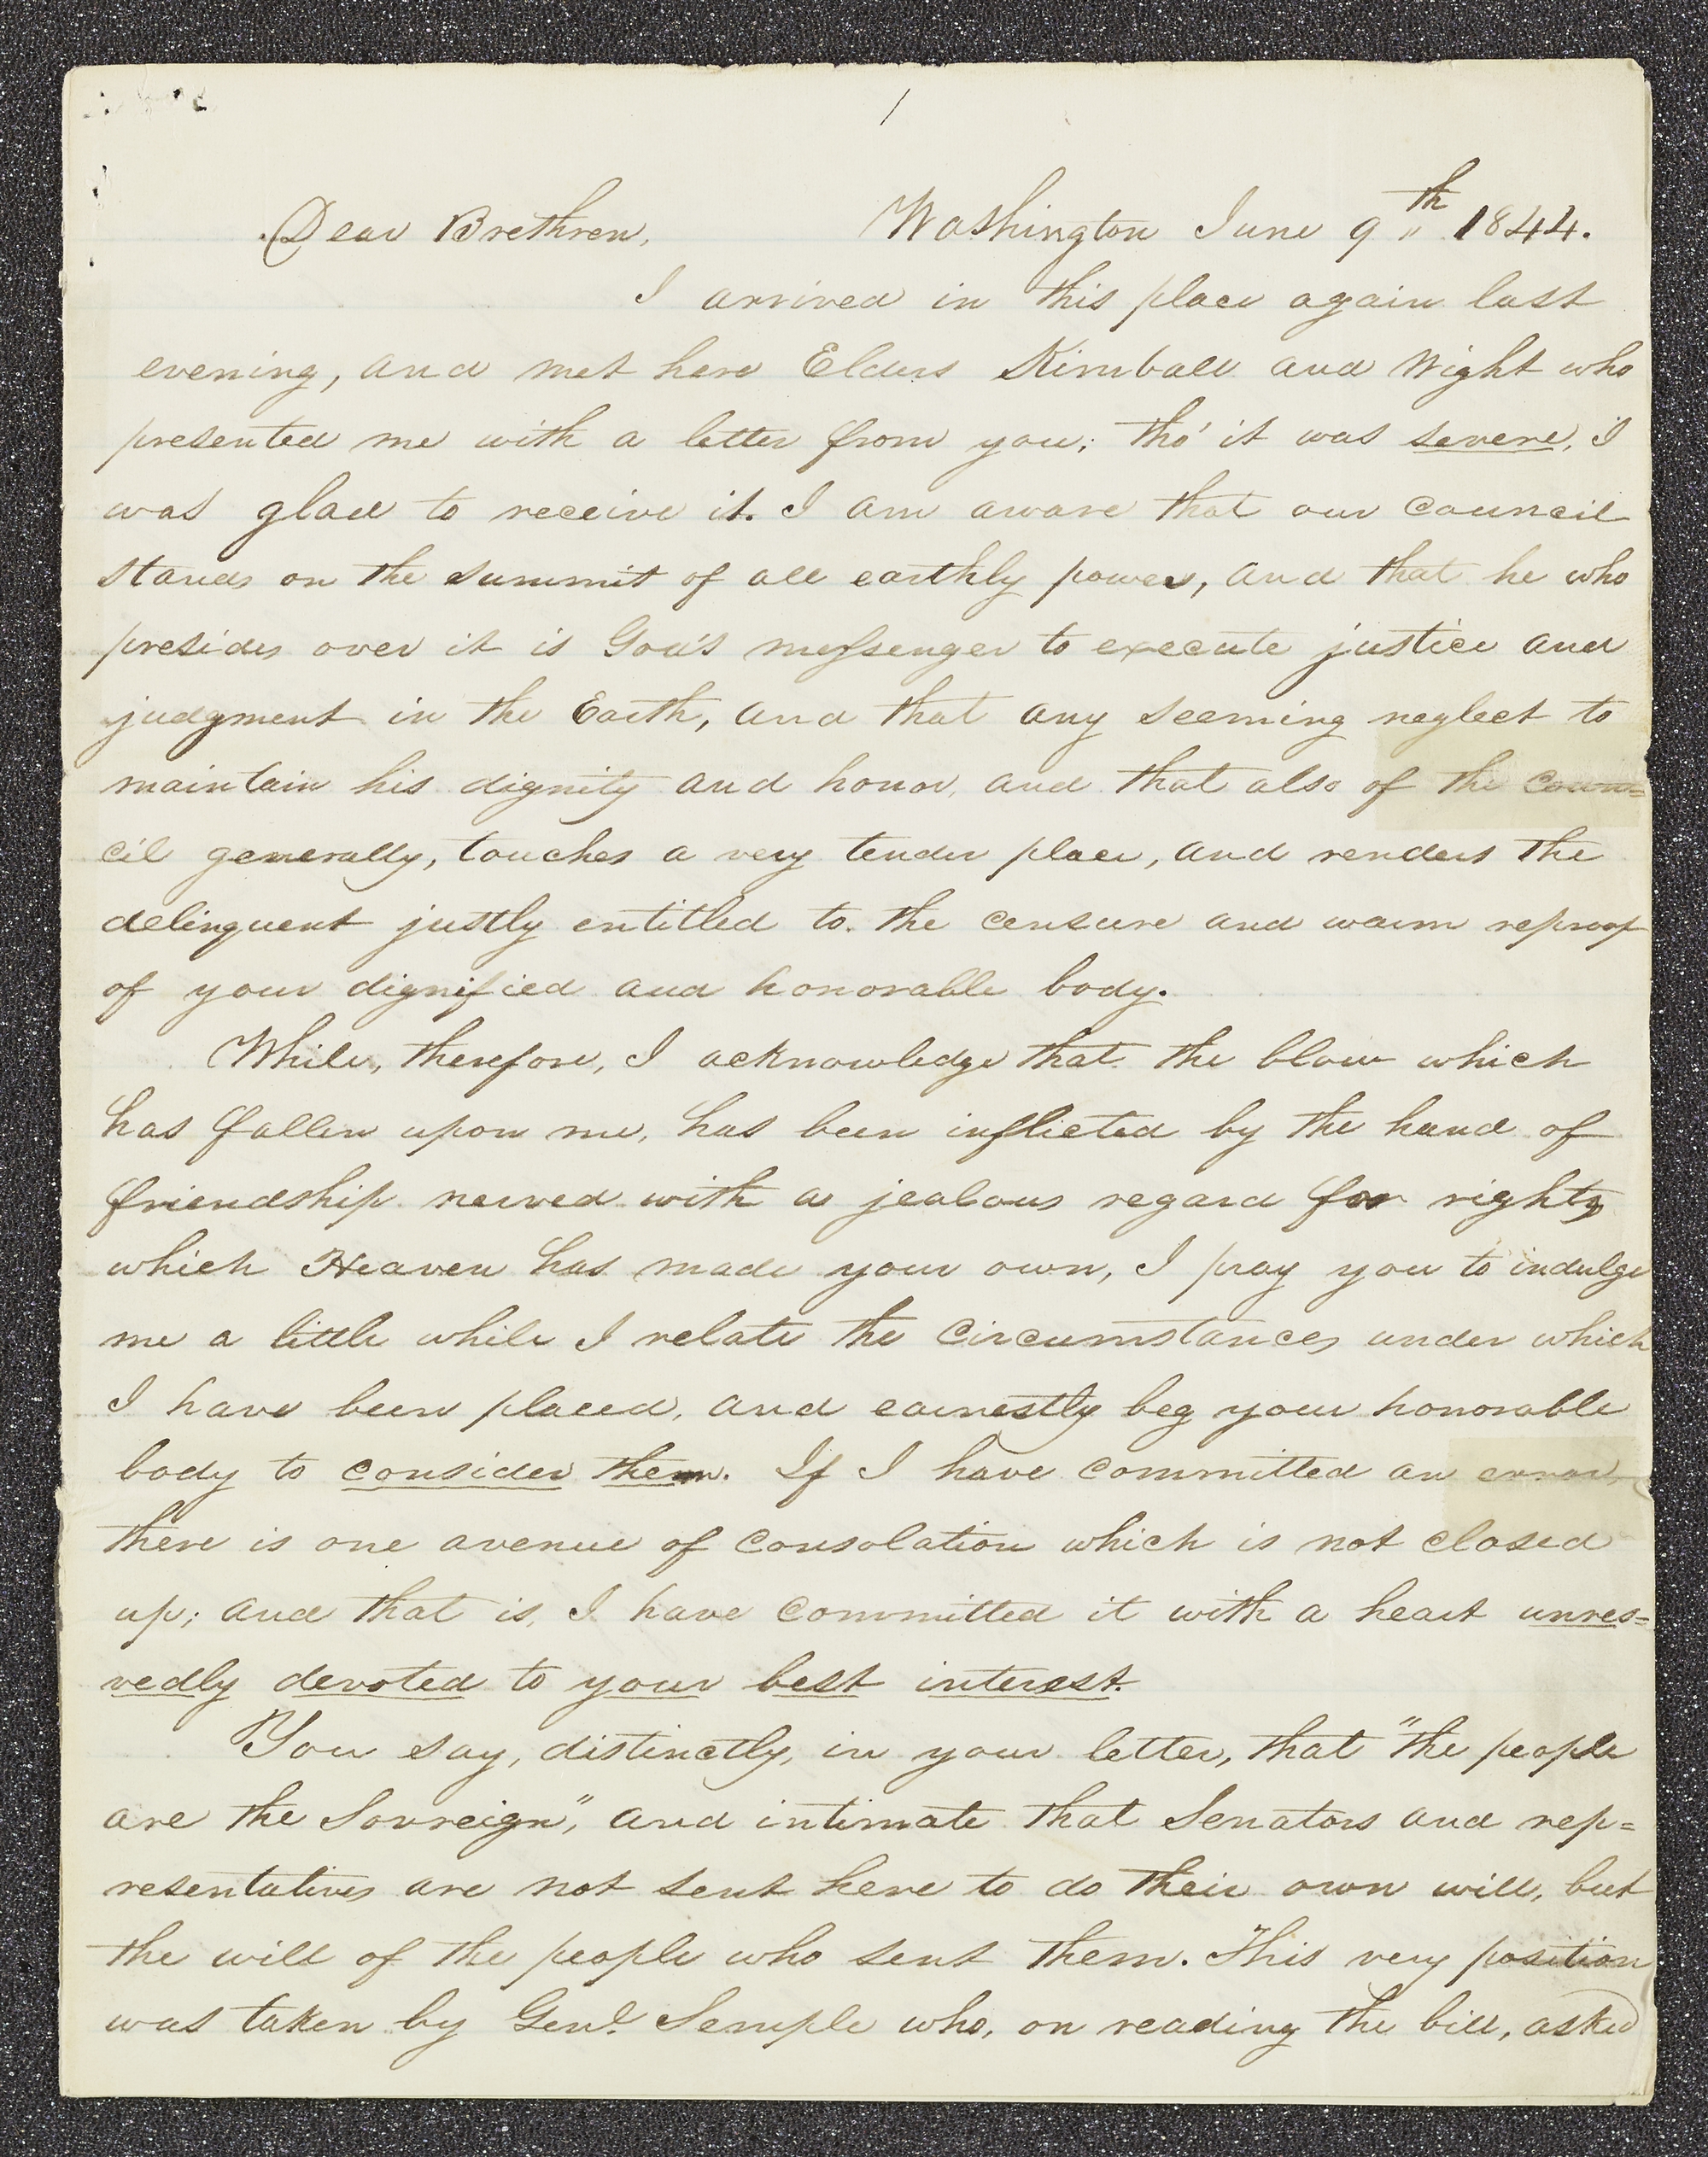 1
Dear Brethren, Washington June 9th 1844.
I arrived in this place again last
evening, and met here Elders Kimball and Wight who
presented me with a letter from you; tho' it was severe, I
was glad to receive it. I am aware that our council
stands on the summit of all earthly power, and that he who
presides over it is God's messenger to execute justice and
judgment in the Earth, and that any seeming neglect to
maintain his dignity and honor, and that also of the coun=
cil generally, touches a very tender place, and renders the
delinquent justly entitled to the censure and warm reproof
of your dignified and honorable body.
While, therefore, I acknowledge that the blow which
has fallen upon me, has been inflicted by the hand of
friendship nerved with a jealous regard for rights
which Heaven has made your own, I pray you to indulge
me a little while I relate the circumstances under which
I have been placed, and earnestly beg your honorable
body to consider them. If I have committed an error,
there is one avenue of consolation which is not closed
up; and that is, I have committed it with a heart unres=
vedly devoted to your best interest.
You say, distinctly, in your letter, that "the people
are the Sovreign", and intimate that Senators and rep=
resentatives are not sent here to do their own will, but
the will of the people who sent them. This very position
was taken by Genl. Semple who, on reading the bill, asked